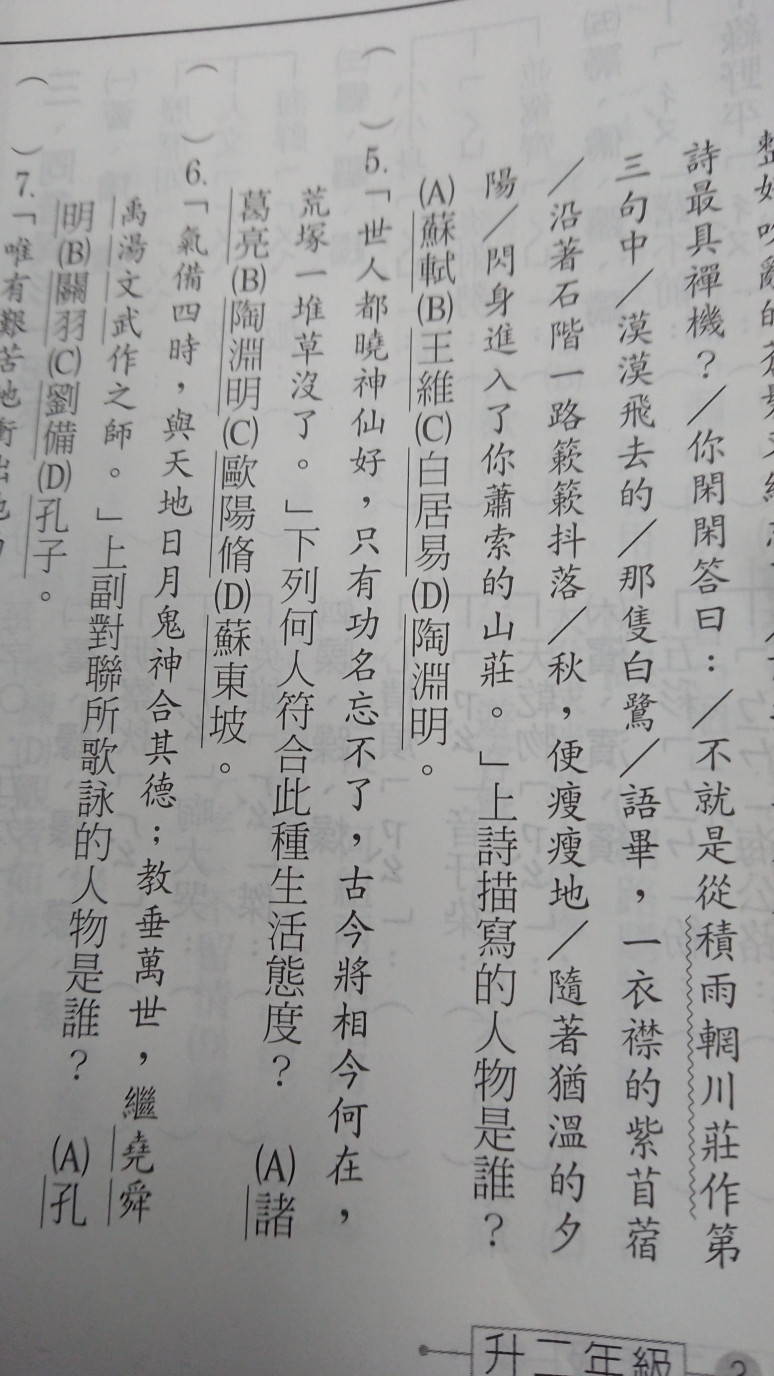 詩最具禪機？／你閑閑答曰：／不就是從積雨輞川莊作第
三句中／漠漠飛去的／那隻白鷺／語畢，一衣襟的紫苜蓿
／沿著石階一路簌簌抖落／秋，便瘦瘦地／隨著猶溫的夕
陽／閃身進入了你蕭索的山莊。」上詩描寫的人物是誰？
(A)蘇軾(B)王維(C)白居易(D)陶淵明。
（　）5.「世人都曉神仙好，只有功名忘不了，古今將相今何在，
荒塚一堆草沒了。」下列何人符合此種生活態度？　(A)諸
葛亮(B)陶淵明(C)歐陽脩(D)蘇東坡。
（　）6.「氣備四時，與天地日月鬼神合其德；教垂萬世，繼堯舜
禹湯文武作之師。」上副對聯所歌詠的人物是誰？　(A)孔
明(B)關羽(C)劉備(D)孔子。
（　）7.「唯有艱苦地衝出
升二年級